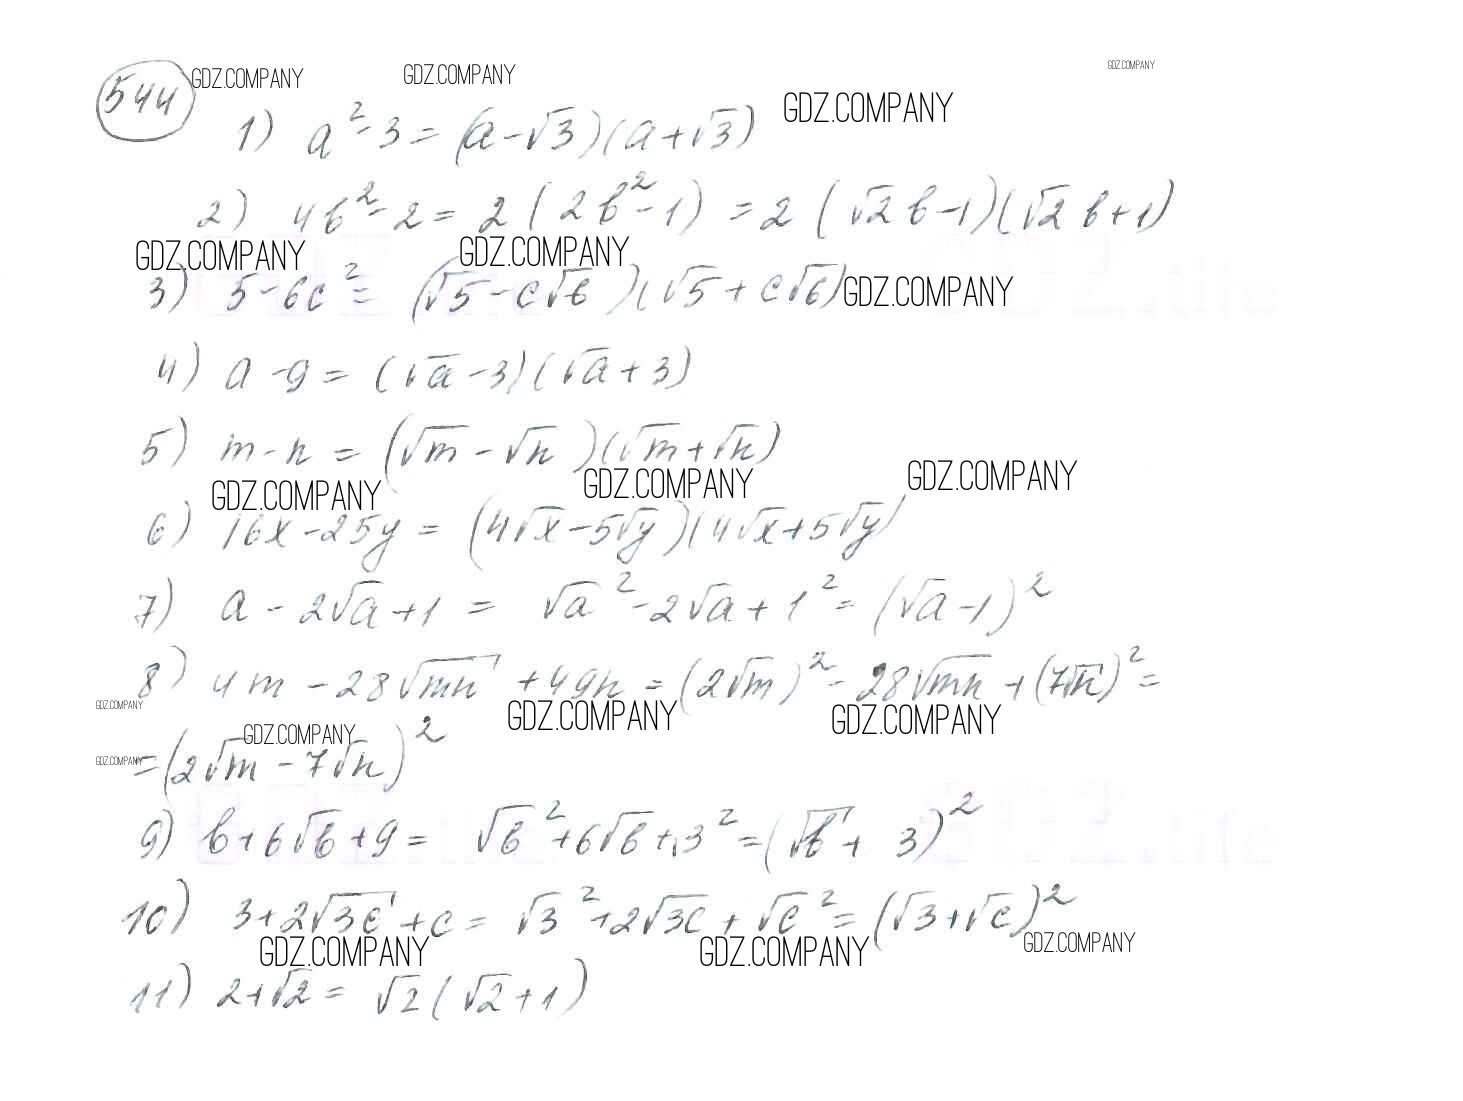 544 GDZ.COMPANY GDZ.COMPANY GDZ.COMPANY
GDZ.COMPANY
1) a² - 3 = (a - √3)(a + √3)
2) 4b² - 2 = 2(2b² - 1) = 2(√2 b - 1)(√2 b + 1)
GDZ.COMPANY GDZ.COMPANY
3) 5 - 6c² = (√5 - c√6)(√5 + c√6) GDZ.COMPANY
4) a - 9 = (√a - 3)(√a + 3)
5) m - n = (√m - √n)(√m + √n)
GDZ.COMPANY GDZ.COMPANY GDZ.COMPANY
6) 16x - 25y = (4√x - 5√y)(4√x + 5√y)
7) a - 2√a + 1 = √a² - 2√a + 1² = (√a - 1)²
8) 4m - 28√mn + 49n = (2√m)² - 28√mn + (7√n)² =
GDZ.COMPANY GDZ.COMPANY GDZ.COMPANY
GDZ.COMPANY
GDZ.COMPANY = (2√m - 7√n)²
9) b + 6√b + 9 = √b² + 6√b + 3² = (√b + 3)²
10) 3 + 2√3c + c = √3² + 2√3c + √c² = (√3 + √c)²
GDZ.COMPANY GDZ.COMPANY GDZ.COMPANY
11) 2 + √2 = √2(√2 + 1)